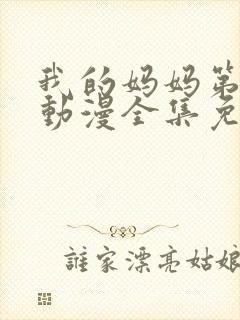 我的妈妈第
動漫全集免
誰家漂亮姑娘